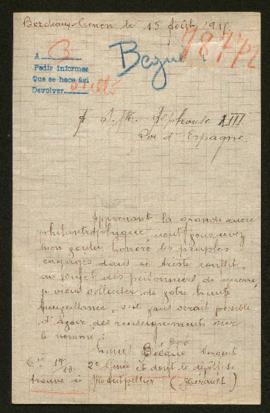 Bordeaux-Cenon le 15 Août 191
A
Pedir informes
Que se hace así
Devolver
B
Bégué
98772
A S. M. Alphonse XIII
Roi d'Espagne
Apprenant la grande œuvre
philanthropique dont vous avez
bien voulu honoré les peuples
engagés dans ce triste conflit,
au sujet des prisonniers de guerre,
je viens solliciter de votre haute
bienveillance, s'il serait possible
d'avoir des renseignements sur
le nommé:
Bégué Sergent
2e Génie et dont le dépôt se
trouve à Montpellier (Hérault)